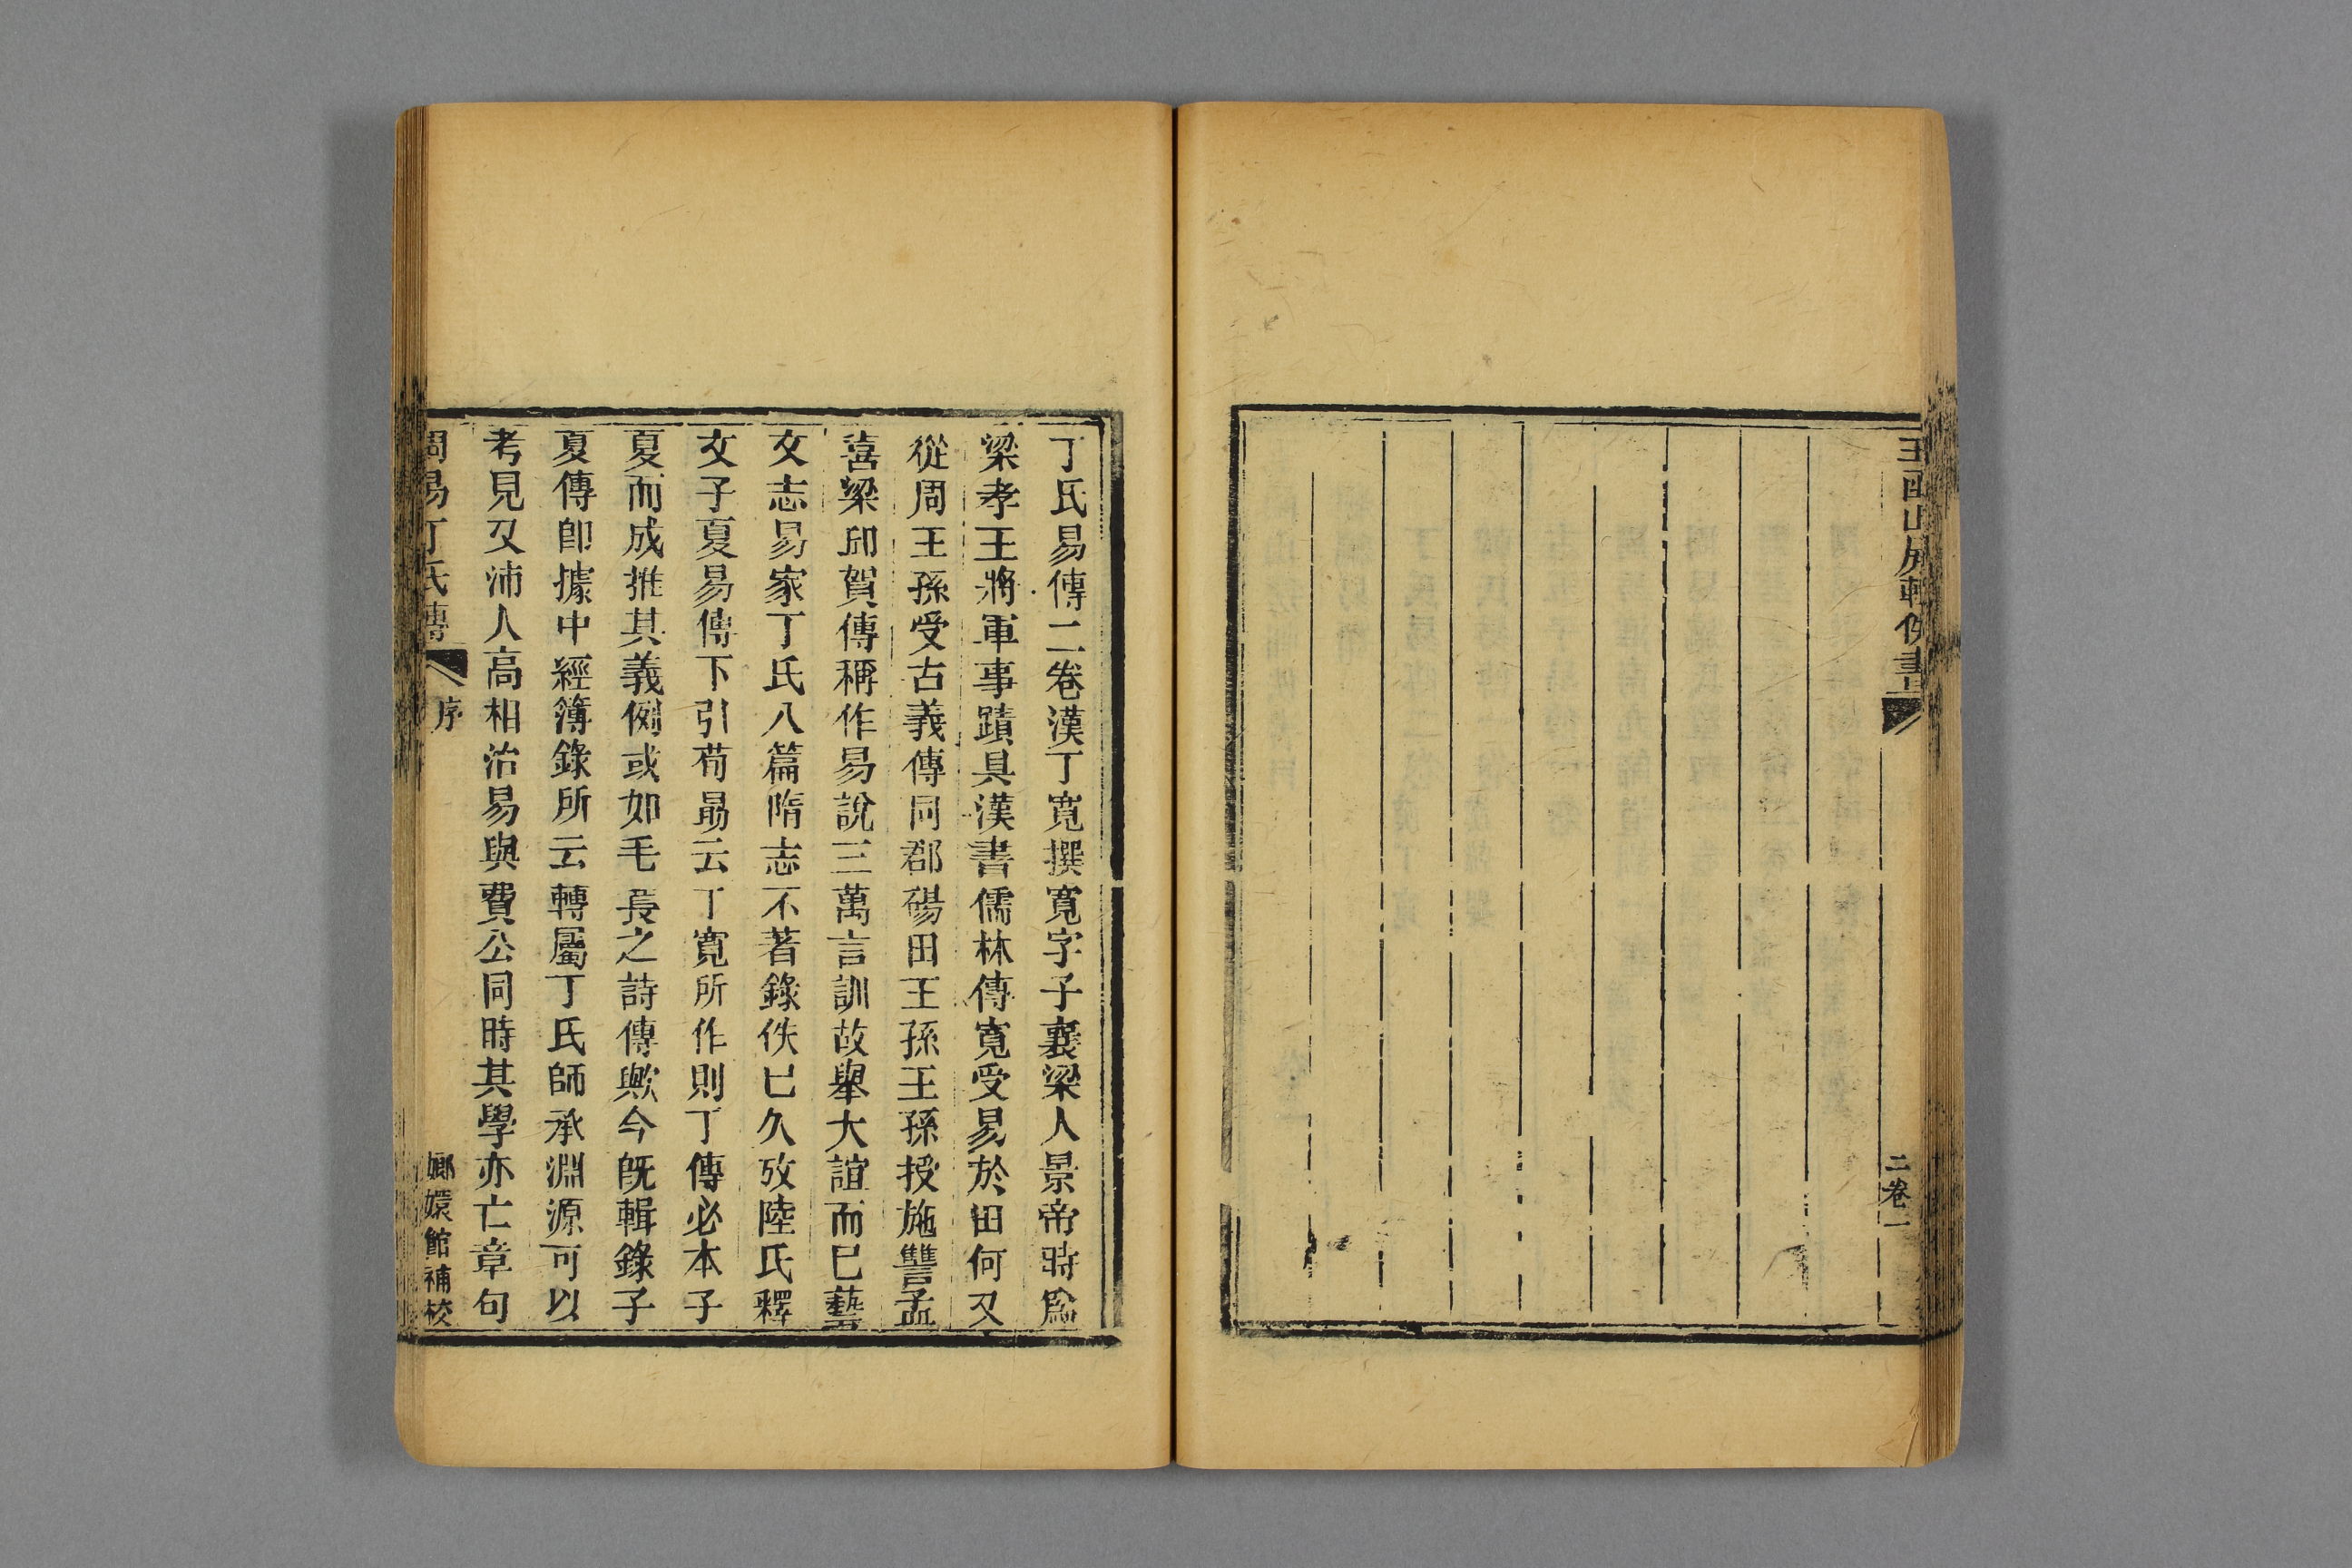 玉函山房輯佚書
二卷一
丁氏易傳二卷漢丁寬撰寬字子襄梁人景帝時爲
梁孝王將軍事蹟具漢書儒林傳寬受易於田何又
從周王孫受古義傳同郡碭田王孫王孫授施讐孟
喜梁邱賀傳稱作易說三萬言訓故舉大誼而已藝
文志易家丁氏八篇隋志不著錄佚已久攷陸氏釋
文子夏易傳下引荀勗云丁寬所作則丁傳必本子
夏而成推其義例或如毛萇之詩傳歟今旣輯錄子
夏傳卽據中經簿錄所云轉屬丁氏師承淵源可以
考見又沛人高相治易與費公同時其學亦亡章句
周易丁氏傳
序
嫏嬛館補校